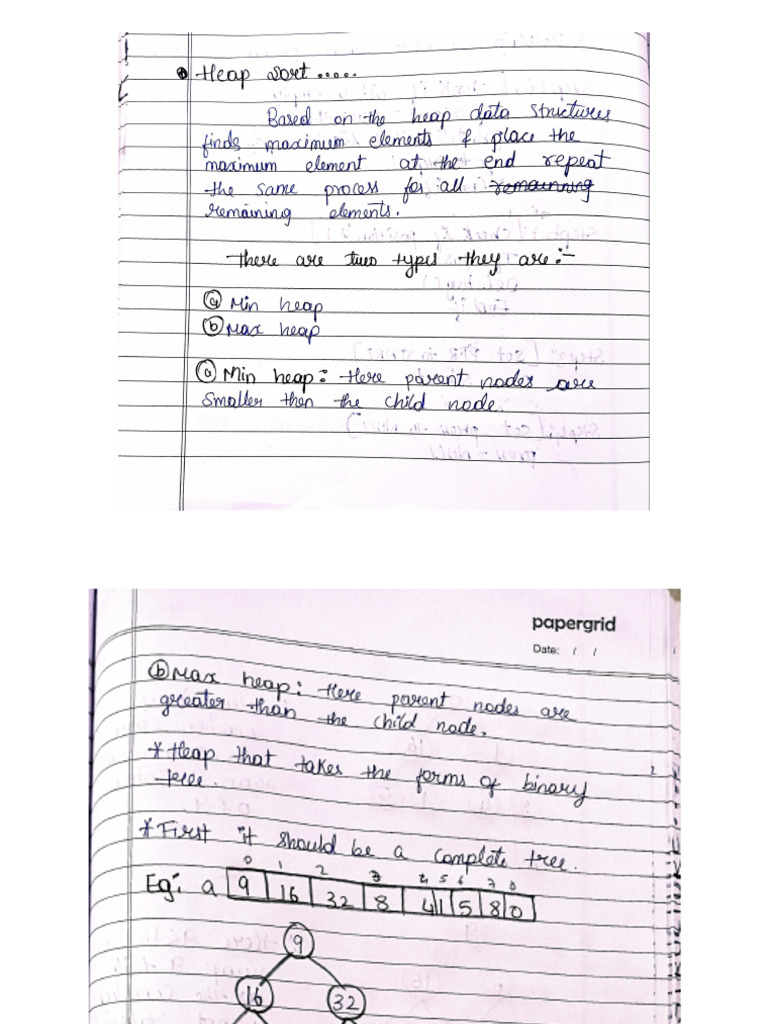 Heap sort.....
Based on the heap data structures
finds maximum elements & place the
maximum element at the end repeat
the same process for all remaunning
remaining elements.
There are two types they are:-
(a) Min heap
(b) Max heap
(a) Min heap: Here parent nodes are
smaller then the child node.
papergrid
Date: / /
(b) Max heap: Here parent nodes are
greater than the child node.
* Heap that takes the forms of binary
tree.
* First it should be a complete tree.
0 1 2 3 4 5 6 7 8
Eg: a 9 16 32 8 4 1 5 8 0
9
16 32